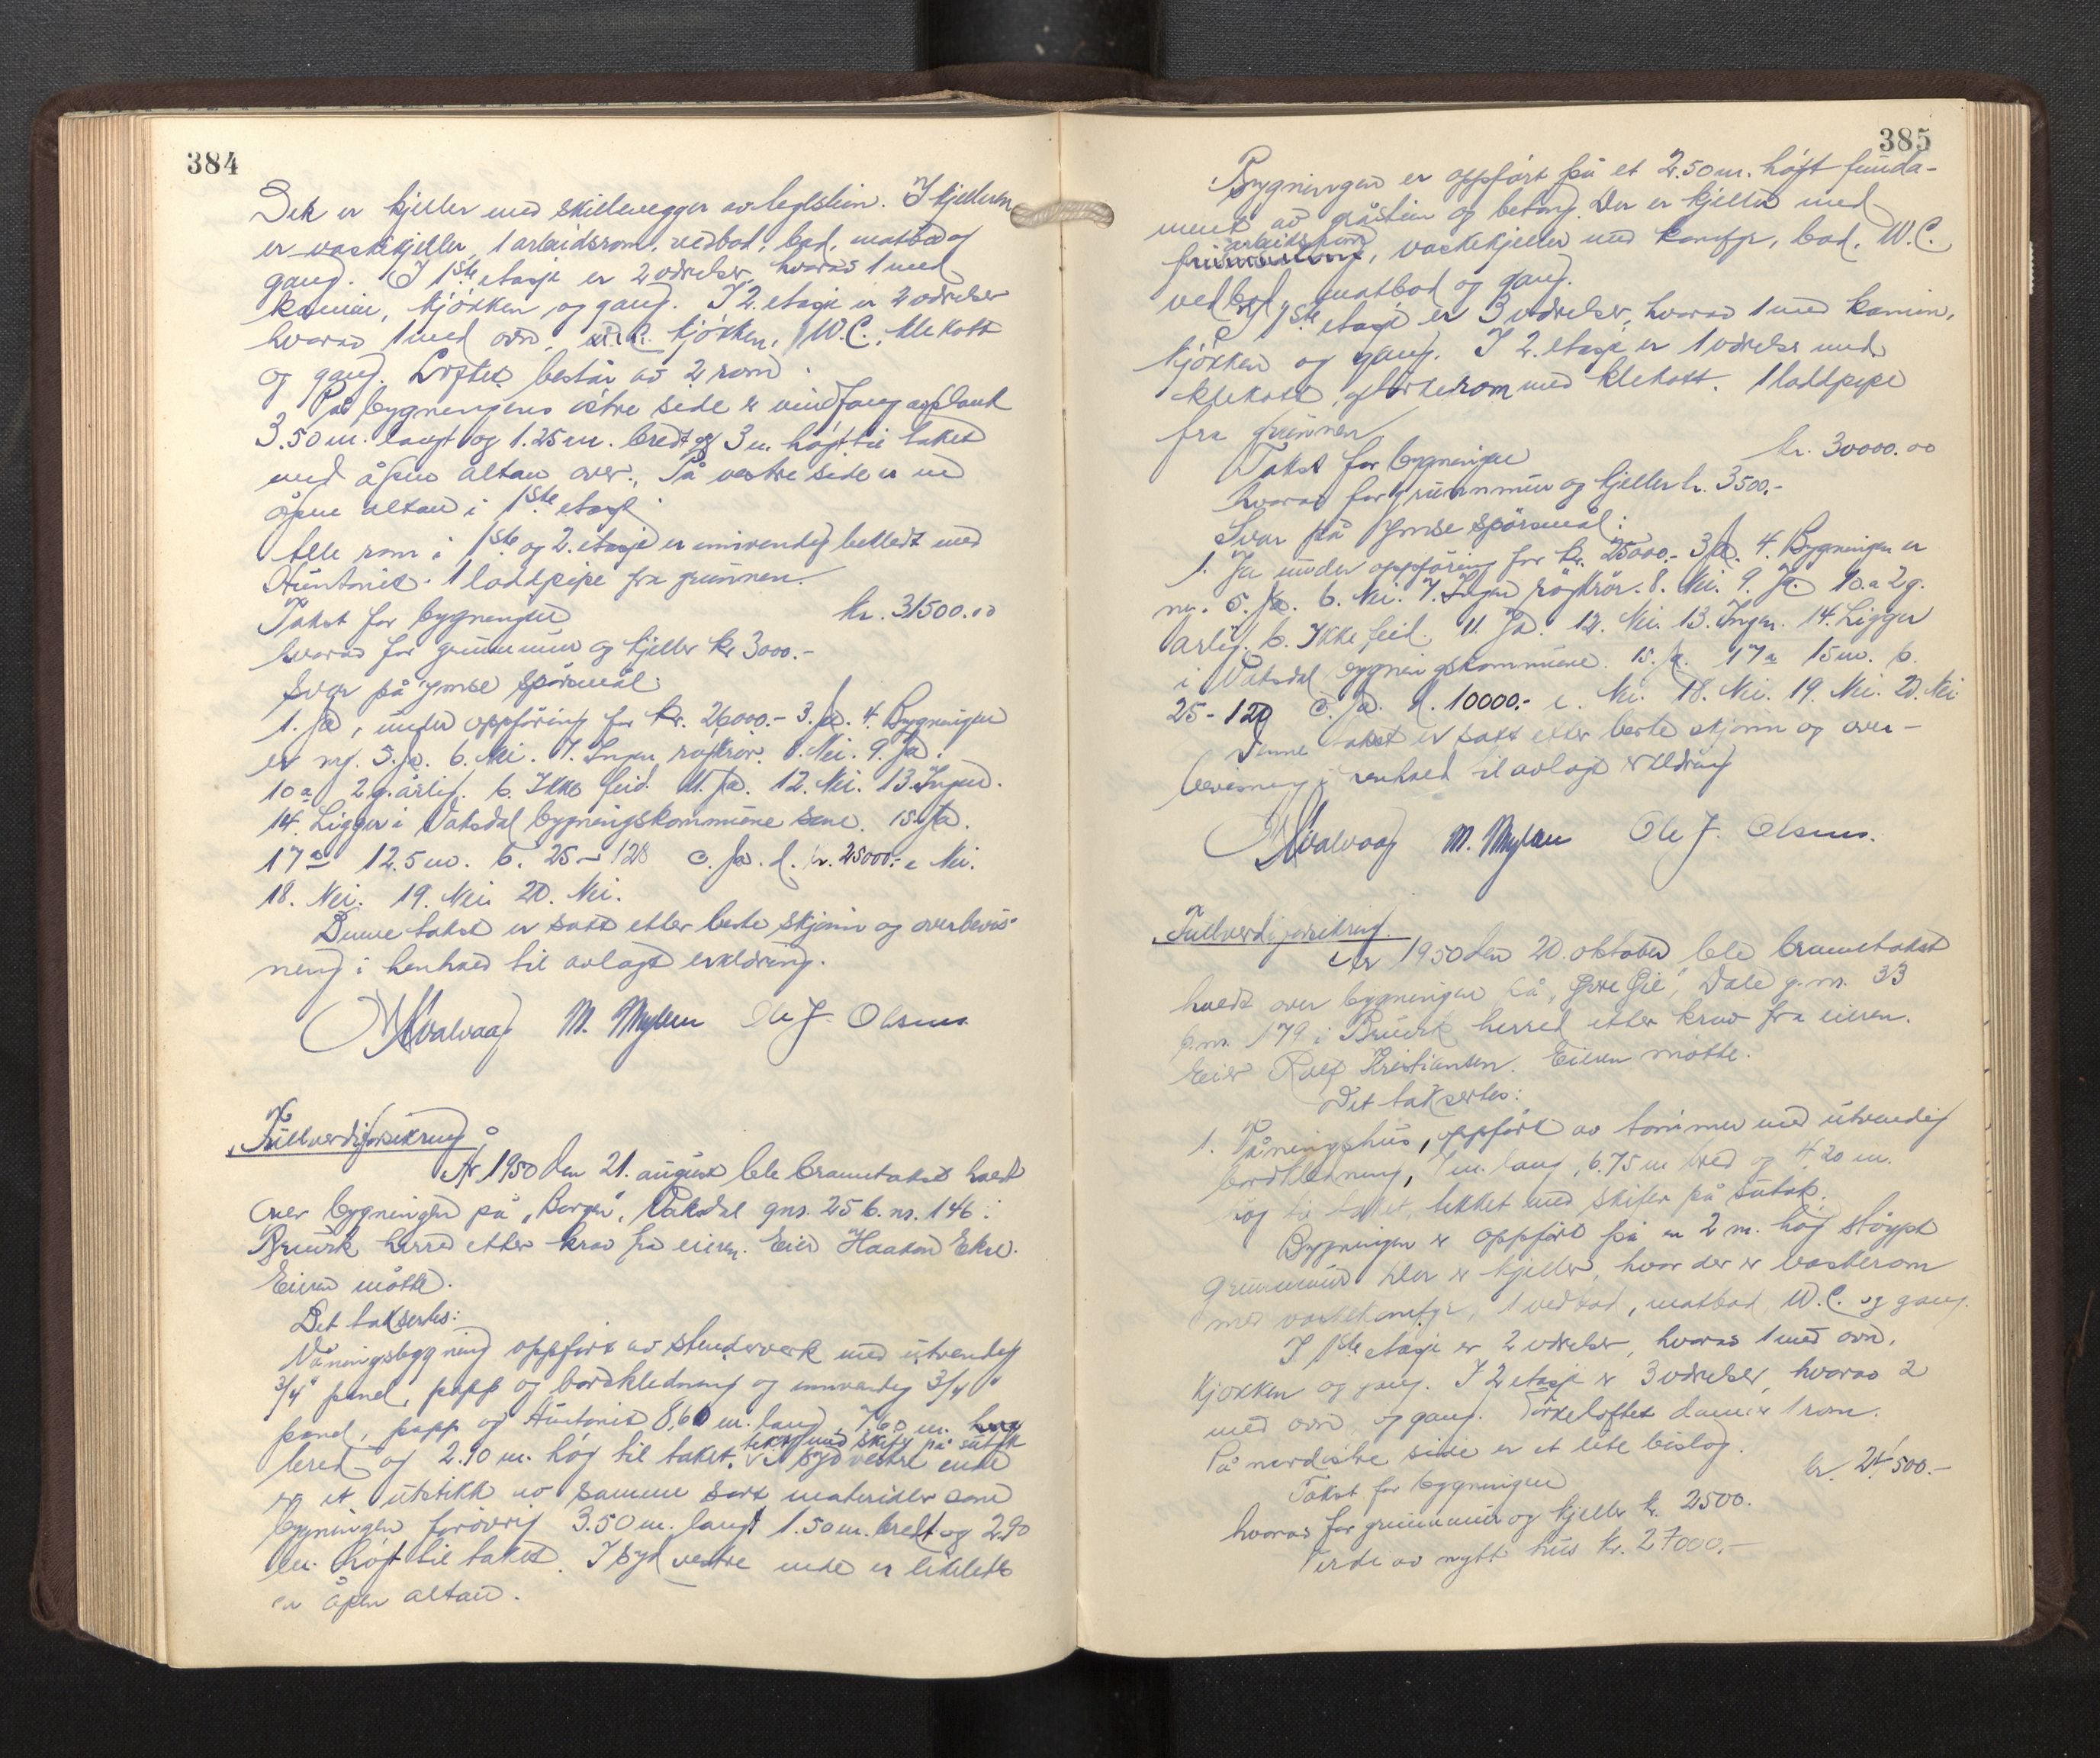 384
Det er kjeller med skillevegger av teglstein. I kjelleren
er vaskekjeller, 1 arbeidsrom, vedbod, bad, matbod og
gang. I 1ste etasje er 2 værelser, hvorav 1 med
kamin, kjøkken og gang. I 2. etasje er 2 værelser
hvorav 1 med ovn, kjøkken, W.C., klekott
og gang. Loftet består av 2 rom.
På bygningens østre side er vindfang av plank
3.50 m. langt og 1.25 m. bredt og 3 m. høgt til taket
med åpen altan over. På vestre side er en
åpen altan i 1ste etasje.
Alle rom i 1ste og 2. etasje er innvendig kledt med
Huntonit. 1 loddpipe fra grunnen.
Takst for bygningen kr. 31500.00
hvorav for grunnmur og kjeller kr 3000.-
Svar på ymse spørsmål:
1. Ja, under oppføring for kr. 26000.- 3. Ja. 4. Bygningen
er ny. 5. Ja. 6. Nei. 7. Ingen røykrør. 8. Nei. 9. Ja.
10 a 2 g. årlig. b. Ikke feid. 11. Ja. 12. Nei. 13. Ingen.
14. Ligger i Vaksdal bygningskommune 15. Ja.
17 a 12.5 m. b. 25 - 128 c. Ja. d. kr. 25000.- e Nei.
18. Nei. 19. Nei. 20. Nei.
Denne takst er satt etter beste skjønn og overbevis-
ning i henhold til avlagt erklæring.
M. Mylen Ole J. Olsen
Fullverdiforsikring
År 1950 den 21. august ble branntakst holdt
over bygningen på "Borgen", Vaksdal gnr. 25 b.nr. 146 i
Bruvik herred etter krav fra eieren. Eier Haakon Ekse.
Eieren møtte.
Det taksertes:
Våningsbygning oppført av stenderverk med utvendig
3/4" panel, papp og bordkledning og innvendig 3/4"
panel, papp og Huntonit 8,60 m. lang, 7,60 m.
bred og 2.90 m. høg til taket, tekt med skifer på sutak. I syd vestre ende
er et utstikk av samme sort materialer som
bygningen forøvrig 3.50 m. langt 1.50 m. bredt og 2.90
m. høgt til taket. I syd vestre ende er likeledes
en åpen altan.
385
Bygningen er oppført på et 2.50 m. høgt funda-
ment av gråstein og betong. Der er kjeller med
arbeidsrom, vaskekjeller med komfyr, bad, W.C.
vedbod, matbod og gang.
I 1ste etasje er 3 værelser, hvorav 1 med kamin,
kjøkken og gang. I 2. etasje er 1 værelse med
klekott, tørkerom med klekott. 1 loddpipe
fra grunnen
Takst for bygningen kr. 30000.00
hvorav for grunnmur og kjeller kr. 3500.-
Svar på ymse spørsmål:
1. Ja under oppføring for kr. 25000.- 3 Ja. 4. Bygningen er
ny. 5. Ja. 6. Nei. 7. Ingen røykrør. 8. Nei. 9. Ja. 10.a 2 g.
årlig. b. Ikke feid. 11. Ja. 12. Nei. 13. Ingen. 14. Ligger
i Vaksdal bygningskommune. 15. Ja. 17 a 15 m. b.
25 - 120 c. Ja. d. 10000.- e. Nei. 18. Nei. 19. Nei. 20. Nei
Denne takst er satt etter beste skjønn og over-
bevisning i henhold til avlagt erklæring
M. Mylen Ole J. Olsen.
Fullverdiforsikring.
År 1950 den 20. oktober ble branntakst
holdt over bygningen på Dale g.nr. 33
b.nr. 179 i Bruvik herred etter krav fra eieren.
Eier Rolf Kristiansen. Eieren møtte.
Det taksertes:
1. Våningshus, oppført av tømmer med utvendig
bordkledning, 7 m. lang, 6.75 m bred og 4.20 m.
høg til taket, tekket med skifer på sutak.
Bygningen er oppført på en 2 m. høg støypt
grunnmur. Der er kjeller, hvor der er vaskerom
med vaskekomfyr, 1 vedbod, matbod, W.C. og gang.
I 1ste etasje er 2 værelser, hvorav 1 med ovn,
kjøkken og gang. I 2 etasje er 3 værelser, hvorav 2
med ovn og gang. Tørkeloftet danner 1 rom.
På nordøstre side er et lite bislag.
Takst for bygningen kr. 24500.-
hvorav for grunnmur og kjeller kr. 2500.
Verdi av nytt hus kr. 27000.-